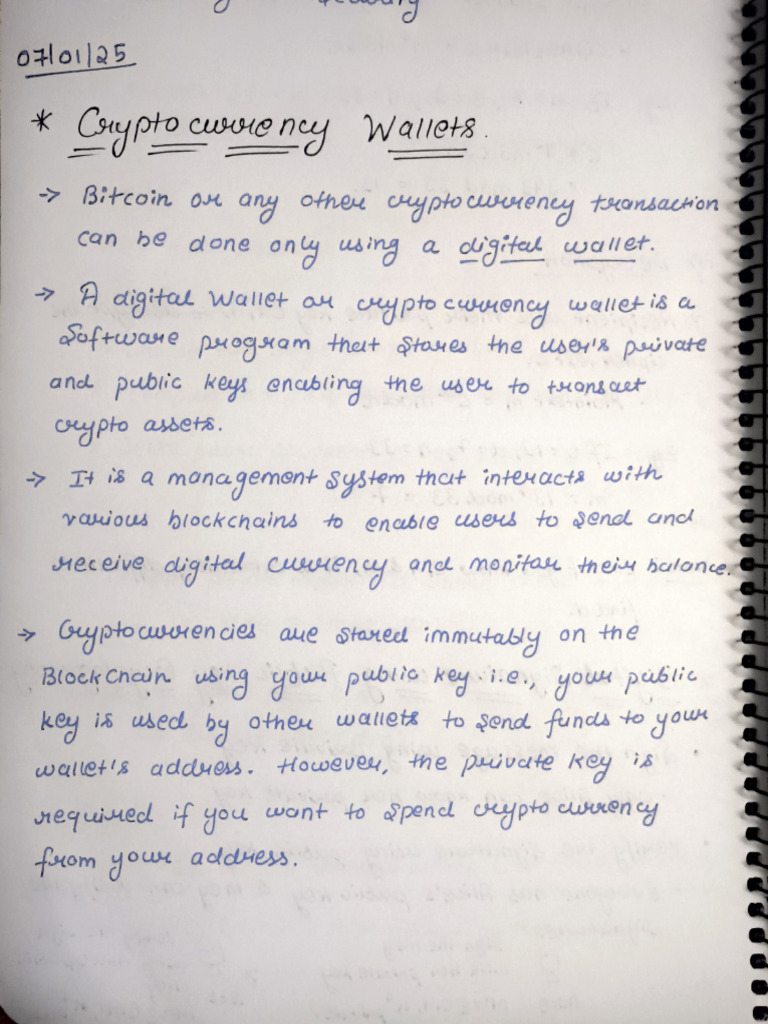 07/01/25
* Cryptocurrency Wallets.
-> Bitcoin or any other cryptocurrency transaction
can be done only using a digital wallet.
-> A digital Wallet or cryptocurrency wallet is a
Software program that stores the user's private
and public keys enabling the user to transact
crypto assets.
-> It is a management system that interacts with
various blockchains to enable users to send and
receive digital currency and monitor their balance.
-> Cryptocurrencies are stored immutably on the
BlockChain using your public key i.e., your public
key is used by other wallets to send funds to your
wallet's address. However, the private key is
required if you want to spend cryptocurrency
from your address.